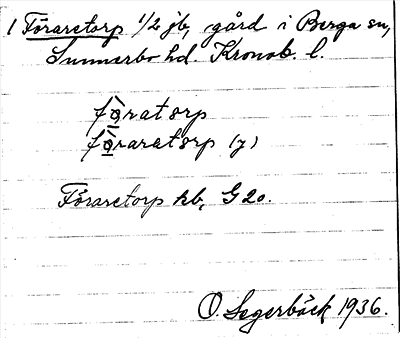 1 Föraretorp 1/2 jb, gård i Berga sn,
Sunnerbo hd. Kronob. l.
fòratorp
fòraratorp (y)
Föraretorp kb, G 20.
O. Segerbäck 1936.